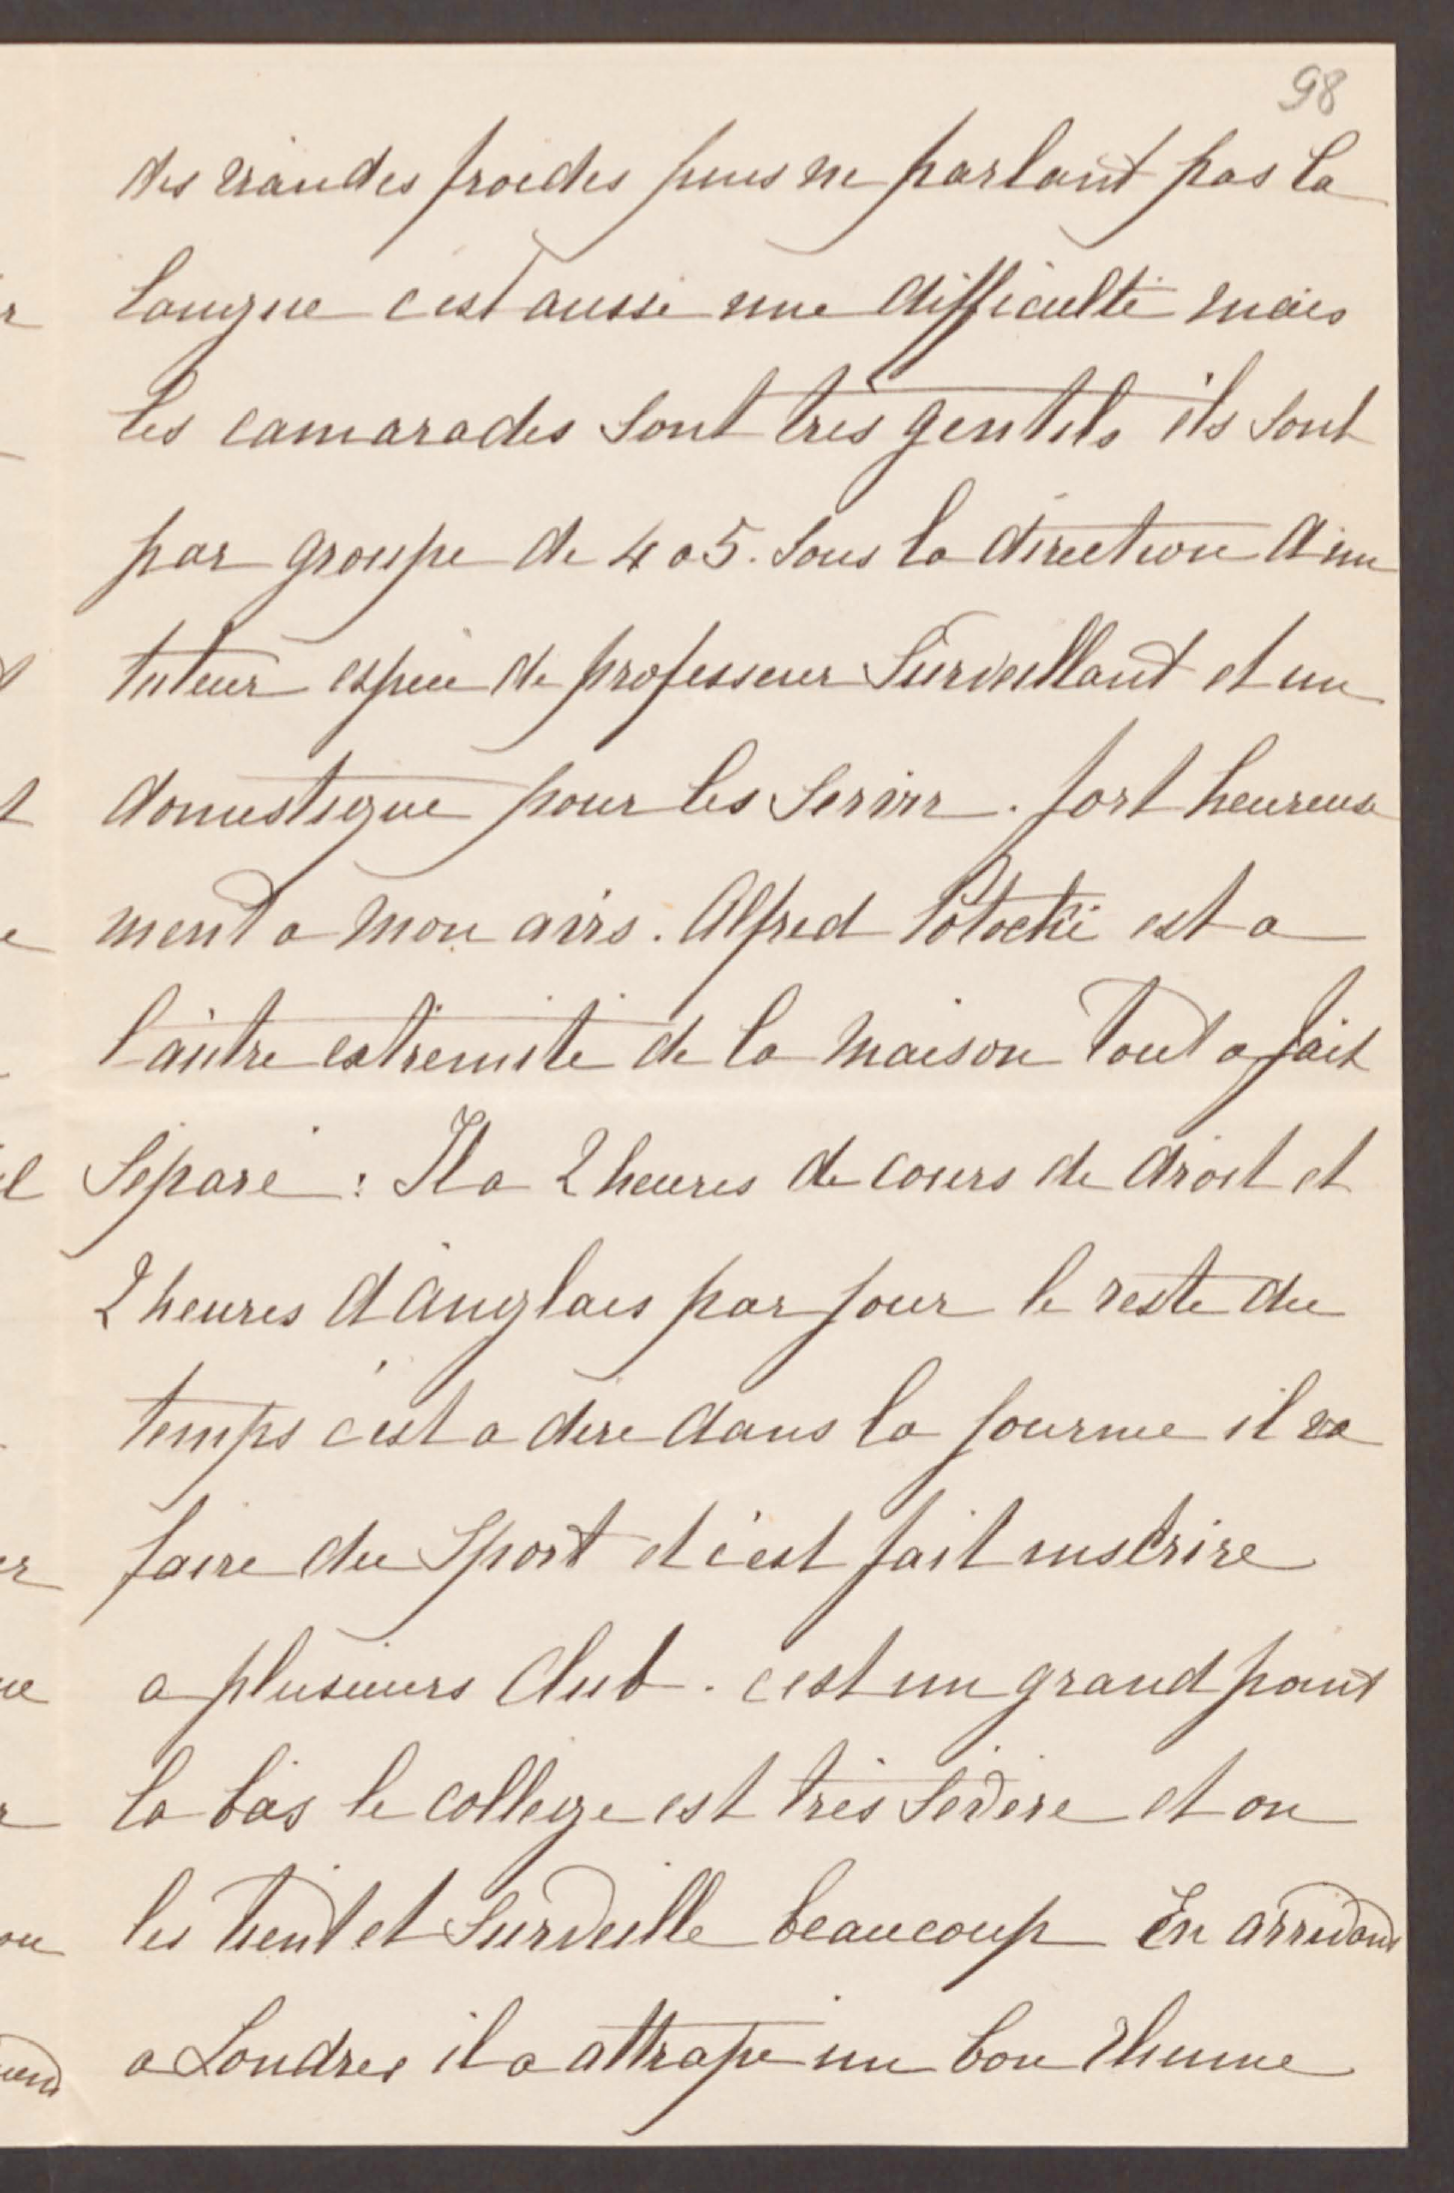 98
des viandes froides puis ne parlant pas la
langue c'est aussi une difficulté mais
les camarades sont très gentils ils sont
par groupe de 4 a 5. sous la direction d'un
tuteur espèce de professeur surveillant et un
domestique pour les servir. fort heureuse
ment a mon avis. Alfred Potocki est a
l'autre extremité de la maison tout a fait
séparé : Il a 2 heures de cours de droit et
2 heures d'anglais par jour le reste du
temps c'est a dire dans la journée il va
faire du sport et c'est fait inscrire
a plusieurs Club. c'est un grand point
la bas le college est très sévère et on
les tient et surveille beaucoup En arrivant
a Londres il a attrapé un bon rhume